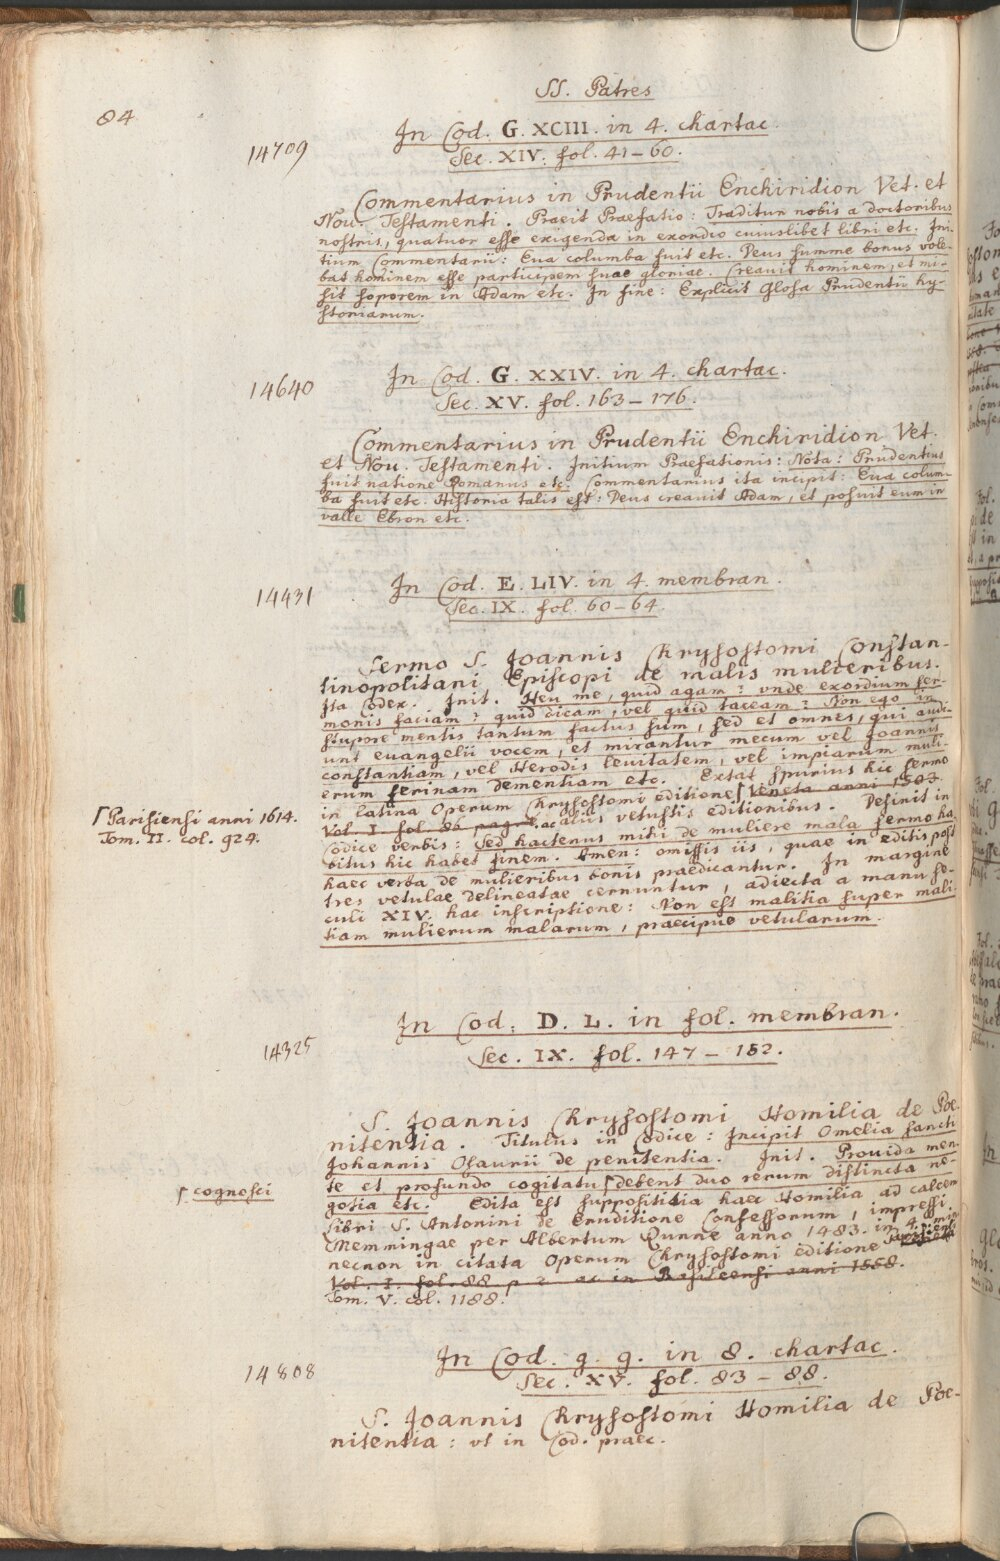 SS. Patres
84
In Cod. G. XCIII. in 4. chartac.
14709
Sec. XIV. fol. 41-60.
Commentarius in Prudentii Enchiridion Vet. et
Nou. Testamenti. Praeit Praefatio: Traditur nobis a doctoribus
nostris, quatuor esse exigenda in exordio cuiuslibet libri etc. Ini-
tium Commentarii: Eua columba fuit etc. Deus summe bonus vole-
bat hominem esse participem suae gloriae. Creauit hominem, et mi-
sit soporem in Adam etc. In fine: Explicit Glosa Prudentii hy-
storiarum.
In Cod. G. XXIV. in 4. chartac.
14640
Sec. XV. fol. 163-176.
Commentarius in Prudentii Enchiridion Vet.
et Nou. Testamenti. Initium Praefationis: Nota: Prudentius
fuit natione Romanus etc. Commentarius ita incipit: Eua colum-
ba fuit etc. Historia talis est: Deus creauit Adam, et posuit eum in
valle Ebron etc.
In Cod. E. LIV. in 4. membran.
14431
Sec. IX. fol. 60-64.
Sermo S. Joannis Chrysostomi Constan-
tinopolitani Episcopi de malis mulieribus.
Ita Codex. Init. Heu me, quid agam? vnde exordium ser-
monis faciam? quid dicam, vel quid taceam? Non ego in
stupore mentis tantum factus sum, sed et omnes, qui audi-
unt euangelii vocem, et mirantur mecum vel Joannis
constantiam, vel Herodis leuitatem, vel impiarum muli-
erum ferinam dementiam etc. Extat spurius hic sermo
in latina Operum Chrysostomi editione ⌈ Veneta anni 1503.
⌈ Parisiensi anni 1614.
Tom. II. col. 924.
Vol. I. fol. 86. ac aliis vetustis editionibus. Definit in
Codice verbis: Sed hactenus mihi de muliere mala sermo ha-
bitus hic habet finem. Amen: omissis iis, quae in editis post
haec verba de mulieribus bonis praedicantur. In margine
tres vetulae delineatae cernuntur, adiecta a manu se-
culi XIV. hac inscriptione: Non est malitia super mali-
tiam mulierum malarum, praecipue vetularum.
In Cod. D. L. in fol. membran.
14325
Sec. IX. fol. 147-152.
S. Joannis Chrysostomi Homilia de Poe-
nitentia. Titulus in Codice: Incipit Omelia sancti
Johannis Osaurii de penitentia. Init. Prouida men-
te et profundo cogitatu ⌈ debent duo rerum distincta ne-
⌈ cognosci
gotia etc. Edita est supposititia haec Homilia ad calcem
Libri S. Antonini de Eruditione Confessorum, impressi
Memmingae per Albertum Kunne anno 1483. in 4.
necnon in citata Operum Chrysostomi editione
Vol. I. fol. 88. ac in Basileensi anni 1558.
Tom. V. col. 1188.
In Cod. g. g. in 8. chartac.
14808
Sec. XV. fol. 83-88.
S. Joannis Chrysostomi Homilia de Poe-
nitentia: vt in Cod. praec.